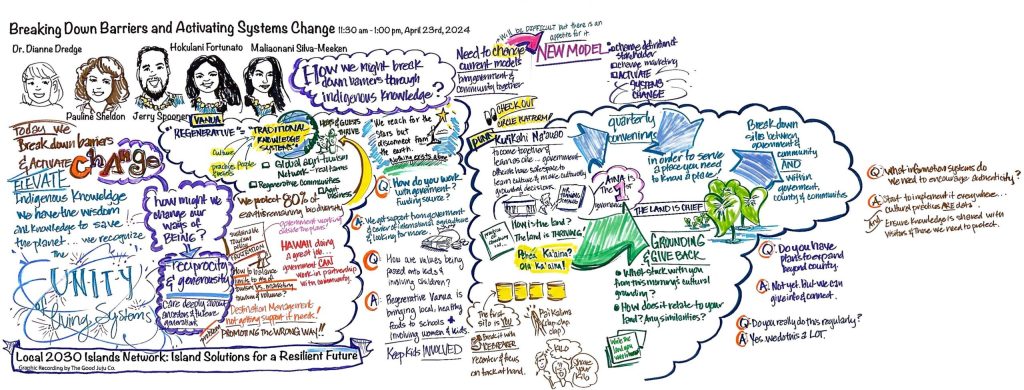 Breaking Down Barriers and Activating Systems Change 11:30 am - 1:00 pm, April 23rd, 2024
Dr. Dianne Dredge
Hokulani Fortunato
Maliaonani Silva-Meeken
Pauline Sheldon
Jerry Spooner
Today we
Break down barriers
& ACTIVATE
CHANGE
ELEVATE
Indigenous Knowledge
We have the wisdom
and Knowledge to save
the planet... we recognize
the
UNITY
of Living Systems
how might we
change our
ways of
BEING?
reciprocity
& generosity
Care deeply about
ancestors & future
generation
VANUA
"REGENERATIVE"
TRADITIONAL
KNOWLEDGE
SYSTEMS
Culture
practices People
HOSTS & GUESTS
THRIVE
Global agri-tourism
Network - real farms
Regenerative communities
We protect 80% of
earth's remaining biodiversity
government working
outside the plans!
HAWAII doing
a great job...
government CAN
work in partnership
with community.
How to balance
Destination Management
not getting support it needs!
PROMOTING the WRONG WAY!!
How we might break
down barriers through
Indigenous Knowledge?
We reach for the
Stars but
disconnect from
the earth.
Nothing exists alone
Q How do you work
with government?
Funding source?
A We get support from government
& center of international agriculture
& looking for more.
Q How are values being
passed into kids &
involving children?
A Regenerative Vanua is
bringing local, healthy
foods to schools +
involving women & kids.
Keep kids INVOLVED
Need to change
current models
bring government &
community together
Will be DIFFICULT but there is an
appetite for it
NEW MODEL
change definition of
stakeholder
change marketing
ACTIVATE
SYSTEMS
CHANGE
CHECK OUT
CIRCLE PLATFORM
Kukahi Ma'uao
to come together &
learn as one... government
officials have safe space to
learn culture & make culturally
grounded decisions.
quarterly
convenings
in order to serve
a place you need
to know a place!
Break down
silos between
government &
community
AND
within
government,
county & communities
'AINA IS
The 1
THE LAND IS CHIEF
How is the land?
The land is THRIVING.
Pehea Ka'aina?
Ola Ka'aina!
GROUNDING
& GIVE BACK
What stuck with you
from this morning's cultural
grounding?
How does it relate to your
land? Any similarities?
The first
silo is YOU
Break it with
recenter & focus
on task at hand.
Poi Kalima
clap-clap,
clap
KILO
Share
your
Kilo
Q What information systems do
we need to encourage authenticity?
A Start to implement it everywhere...
cultural practices ARE data.
Ensure Knowledge is shared with
visitors & those we need to protect.
Q Do you have
plans to expand
beyond county.
A Not yet. But we can
give info & connect.
Q Do you really do this regularly?
A Yes we do this A LOT.
Local 2030 Islands Network: Island Solutions for a Resilient Future
Graphic Recording by The Good Juju Co.